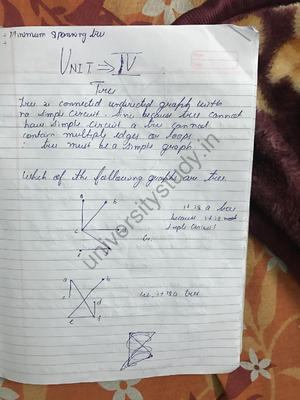 Minimum Spanning tree
UNIT ⇒ IV
Tree
Tree is connected undirected graph with
no simple circuit. Since because tree cannot
have simple circuit a tree cannot
contain multiple edges or loops
∴ tree must be a simple graph.
Which of the following graph are tree
a b
it is a tree
because it is
simple circuit
c
e f
a b
yes it is a tree
c d
e f
universitystudy.in